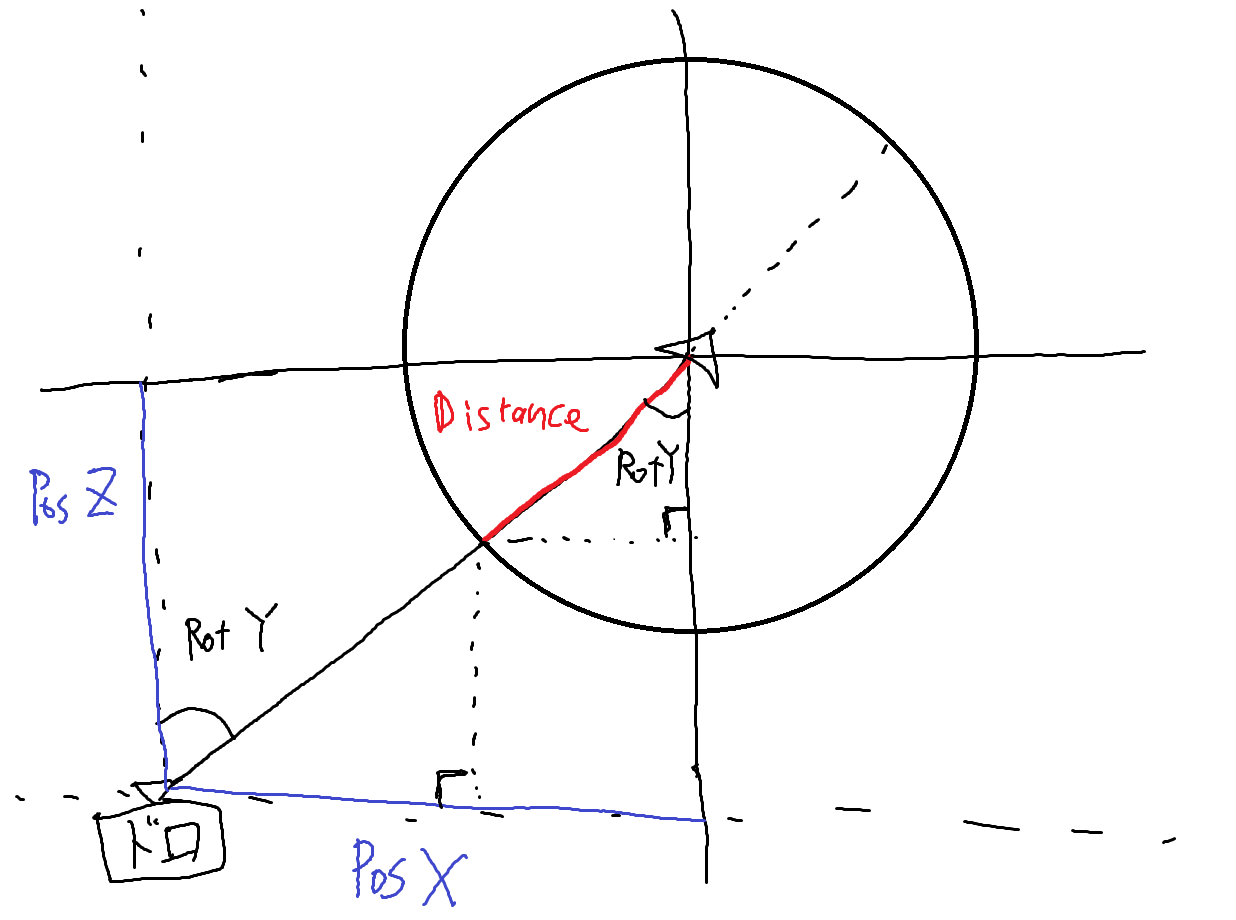 Distance
RotY
Pos Z
Rot Y
ドロ
Pos X